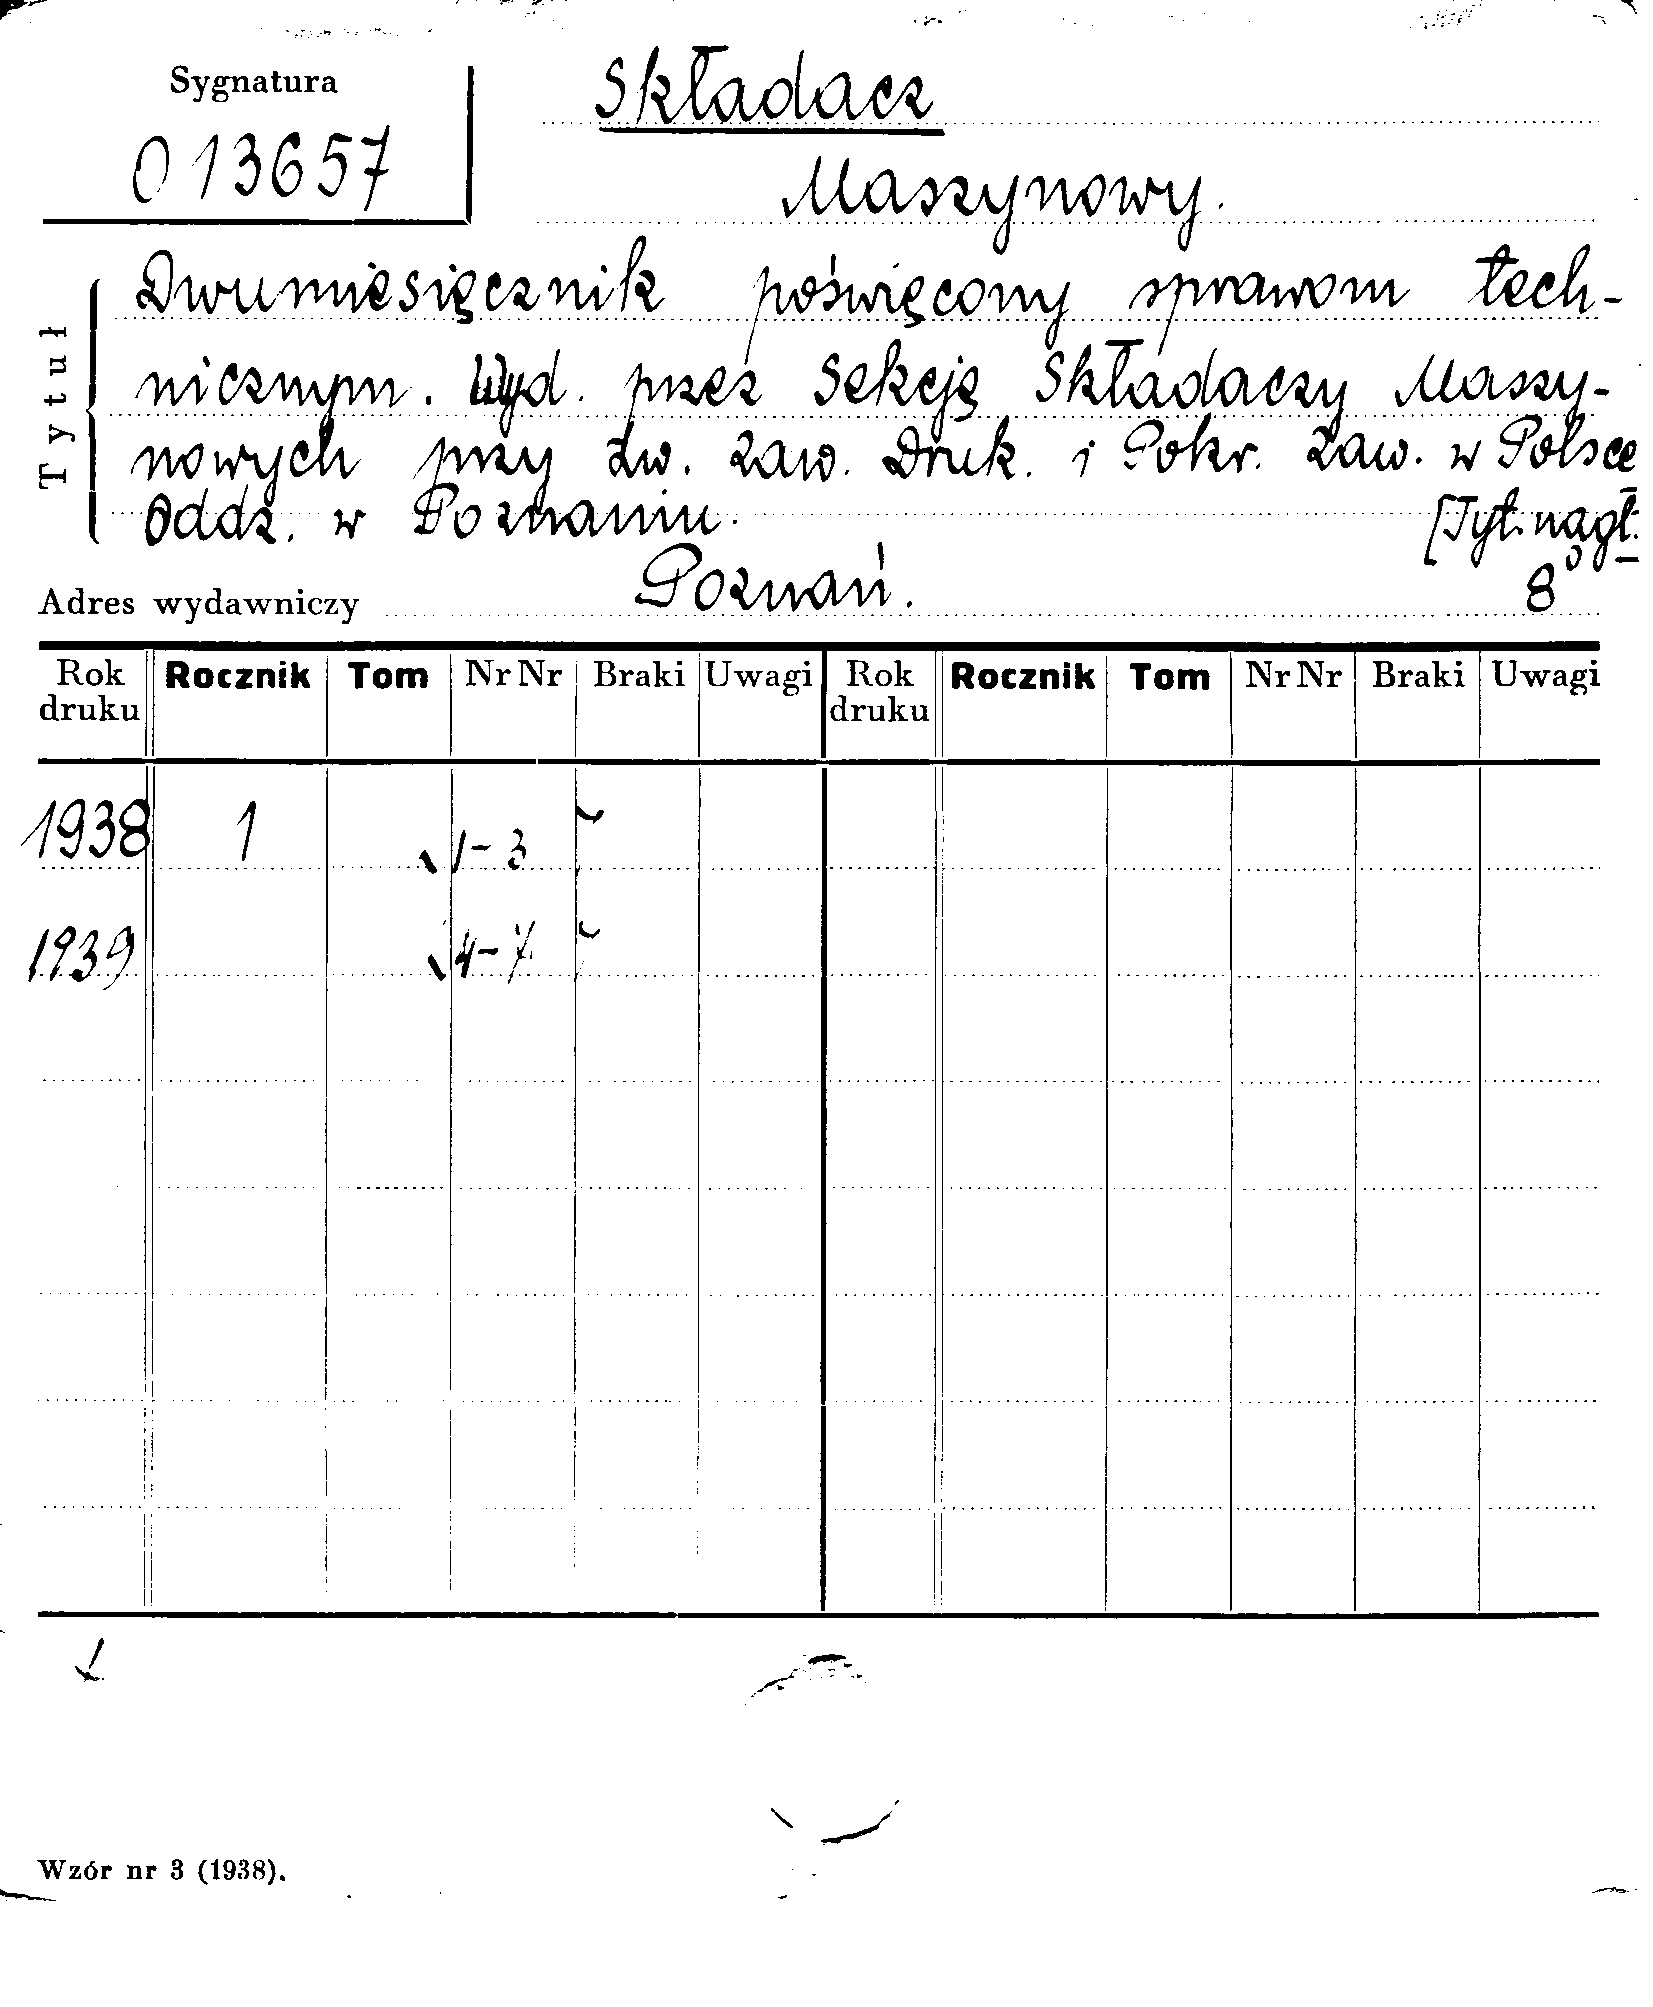 Sygnatura
013657
Składacz
Maszynowy.
Tytuł
Dwumiesięcznik poświęcony sprawom tech-
nicznym. Wyd. przez Sekcję Składaczy Maszy-
nowych przy Zw. Zaw. Druk. i Pokr. Zaw. w Polsce
Oddz. w Poznaniu.
[Tyt. nagł.
Adres wydawniczy Poznań. 8°
Rok druku Rocznik Tom Nr Nr Braki Uwagi Rok druku Rocznik Tom Nr Nr Braki Uwagi
1938 1 1-3
1939 4-7
Wzór nr 3 (1938).